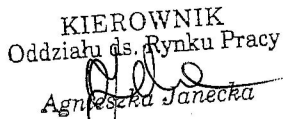 KIEROWNIK
Oddziału ds. Rynku Pracy
Agnieszka Janecka